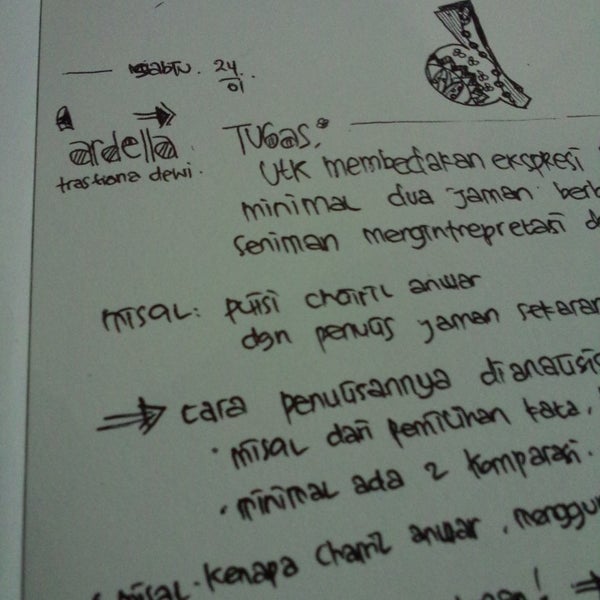 sabtu. 24/01.
ardella
trastiona dewi.
TUGas:
Utk membedakan ekspresi
minimal dua jaman berb
seniman mengintrepretasi d
misal: puisi chairil anwar
dgn penulis jaman sekaran
⇒ cara penulisannya di analisis
· misal dari pemilihan kata,
· minimal ada 2 komparasi.
misal. kenapa chairil anwar, menggu